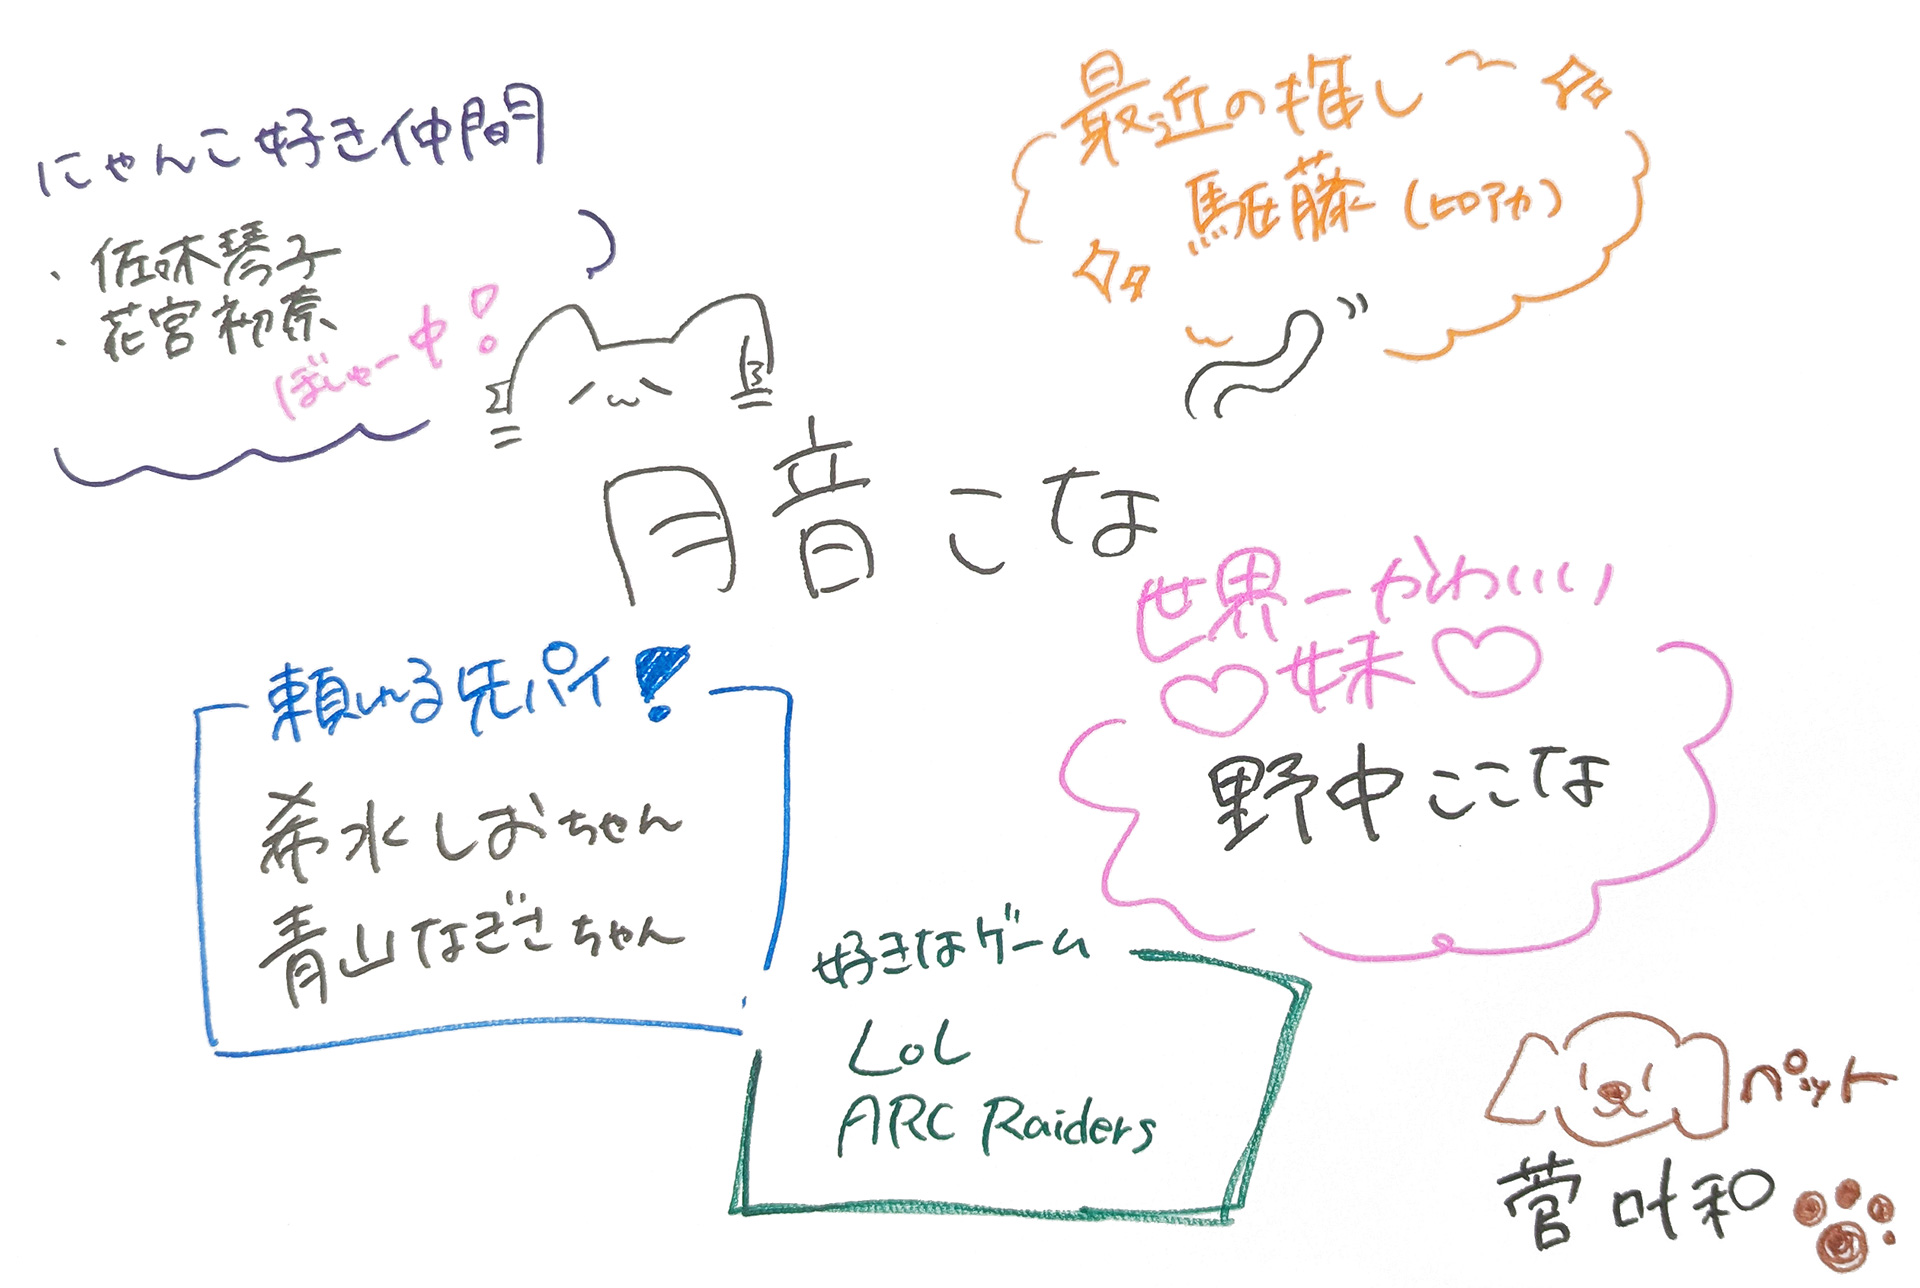 にゃんこ好き仲間
・佐々木琴子
・花宮初奈
ぼしゅー中!
最近の推し〜
騙藤(ヒロアカ)
月音こな
世界一かわいい
♡妹♡
野中ここな
頼れる先パイ!
希水しおちゃん
青山なぎさちゃん
好きなゲーム
LoL
ARC Raiders
ペット
菅叶和